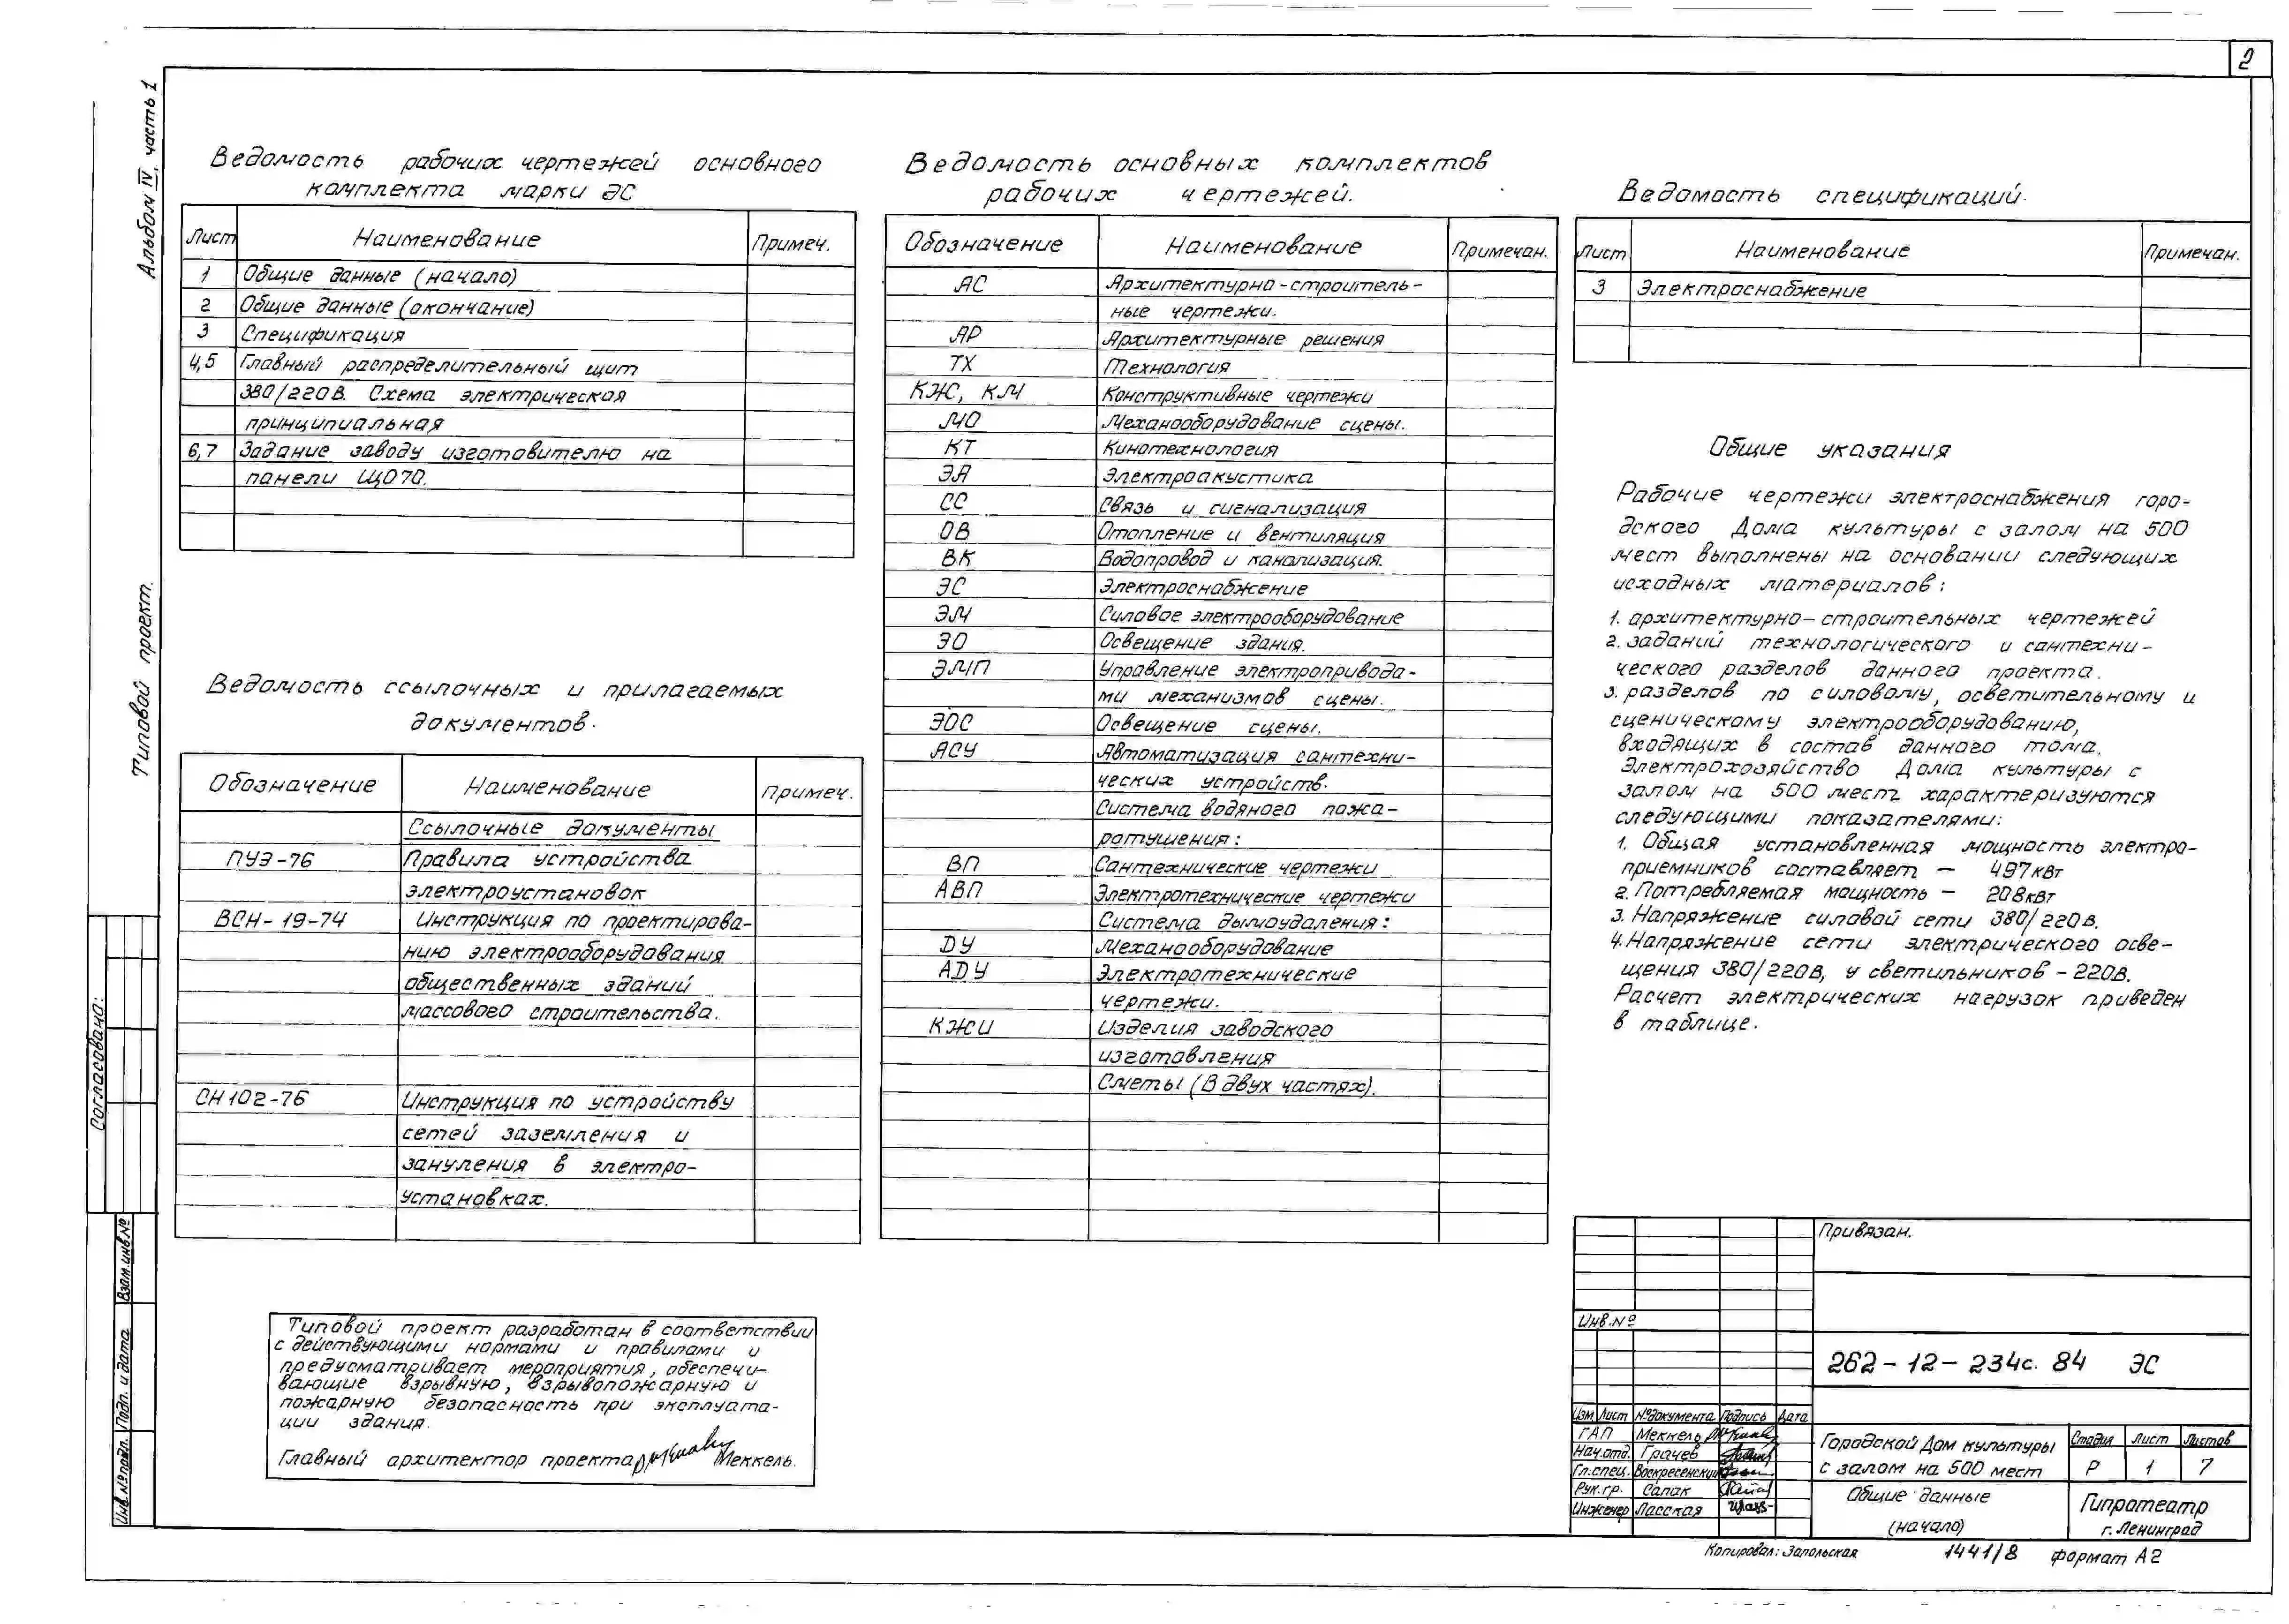 2
Альбом IV, часть 1
Типовой проект.
Ведомость рабочих чертежей основного
комплекта марки ЭС
Лист Наименование Примеч.
1 Общие данные (начало)
2 Общие данные (окончание)
3 Спецификация
4,5 Главный распределительный щит
380/220В. Схема электрическая
принципиальная
6,7 Задание заводу изготовителю на
панели ЩО70.
Ведомость ссылочных и прилагаемых
документов.
Обозначение Наименование Примеч.
Ссылочные документы
ПУЭ-76 Правила устройства
электроустановок
ВСН-19-74 Инструкция по проектирова-
нию электрооборудования
общественных зданий
массового строительства.
СН 102-76 Инструкция по устройству
сетей заземления и
зануления в электро-
установках.
Типовой проект разработан в соответствии
с действующими нормами и правилами и
предусматривает мероприятия, обеспечи-
вающие взрывную, взрывопожарную и
пожарную безопасность при эксплуата-
ции здания.
Главный архитектор проекта Меккель.
Ведомость основных комплектов
рабочих чертежей.
Обозначение Наименование Примечан.
АС Архитектурно-строитель-
ные чертежи.
АР Архитектурные решения
ТХ Технология
КЖ, КМ Конструктивные чертежи
МО Механооборудование сцены.
КТ Кинотехнология
ЭА Электроакустика
СС Связь и сигнализация
ОВ Отопление и вентиляция
ВК Водопровод и канализация.
ЭС Электроснабжение
ЭМ Силовое электрооборудование
ЭО Освещение здания.
ЭМП Управление электропривода-
ми механизмов сцены.
ЭОС Освещение сцены.
АСУ Автоматизация сантехни-
ческих устройств.
Система водяного пожа-
ротушения:
ВП Сантехнические чертежи
АВП Электротехнические чертежи
Система дымоудаления:
ДУ Механооборудование
АДУ Электротехнические
чертежи.
КЖИ Изделия заводского
изготовления
Сметы (В двух частях).
Ведомость спецификаций.
Лист Наименование Примечан.
3 Электроснабжение
Общие указания
Рабочие чертежи электроснабжения горо-
дского Дома культуры с залом на 500
мест выполнены на основании следующих
исходных материалов:
1. архитектурно-строительных чертежей
2. заданий технологического и сантехни-
ческого разделов данного проекта.
3. разделов по силовому, осветительному и
сценическому электрооборудованию,
входящих в состав данного тома.
Электрохозяйство Дома культуры с
залом на 500 мест характеризуются
следующими показателями:
1. Общая установленная мощность электро-
приемников составляет — 497кВт
2. Потребляемая мощность — 208кВт
3. Напряжение силовой сети 380/220В.
4. Напряжение сети электрического осве-
щения 380/220В, у светильников - 220В.
Расчет электрических нагрузок приведен
в таблице.
Согласовано:
Взам.инв.№
Подп. и дата
Инв.№ подл.
Привязан.
Инв.№
262-12-234с. 84 ЭС
Изм Лист № документа Подпись Дата
ГАП Меккель
Нач.отд. Грачев
Гл.спец. Воскресенский
Рук.гр. Сапак
Инженер Ласская
Городской Дом культуры
с залом на 500 мест
Стадия Лист Листов
Р 1 7
Общие данные
(начало)
Гипротеатр
г. Ленинград
Копировал: Запольская 1441/8 формат А2